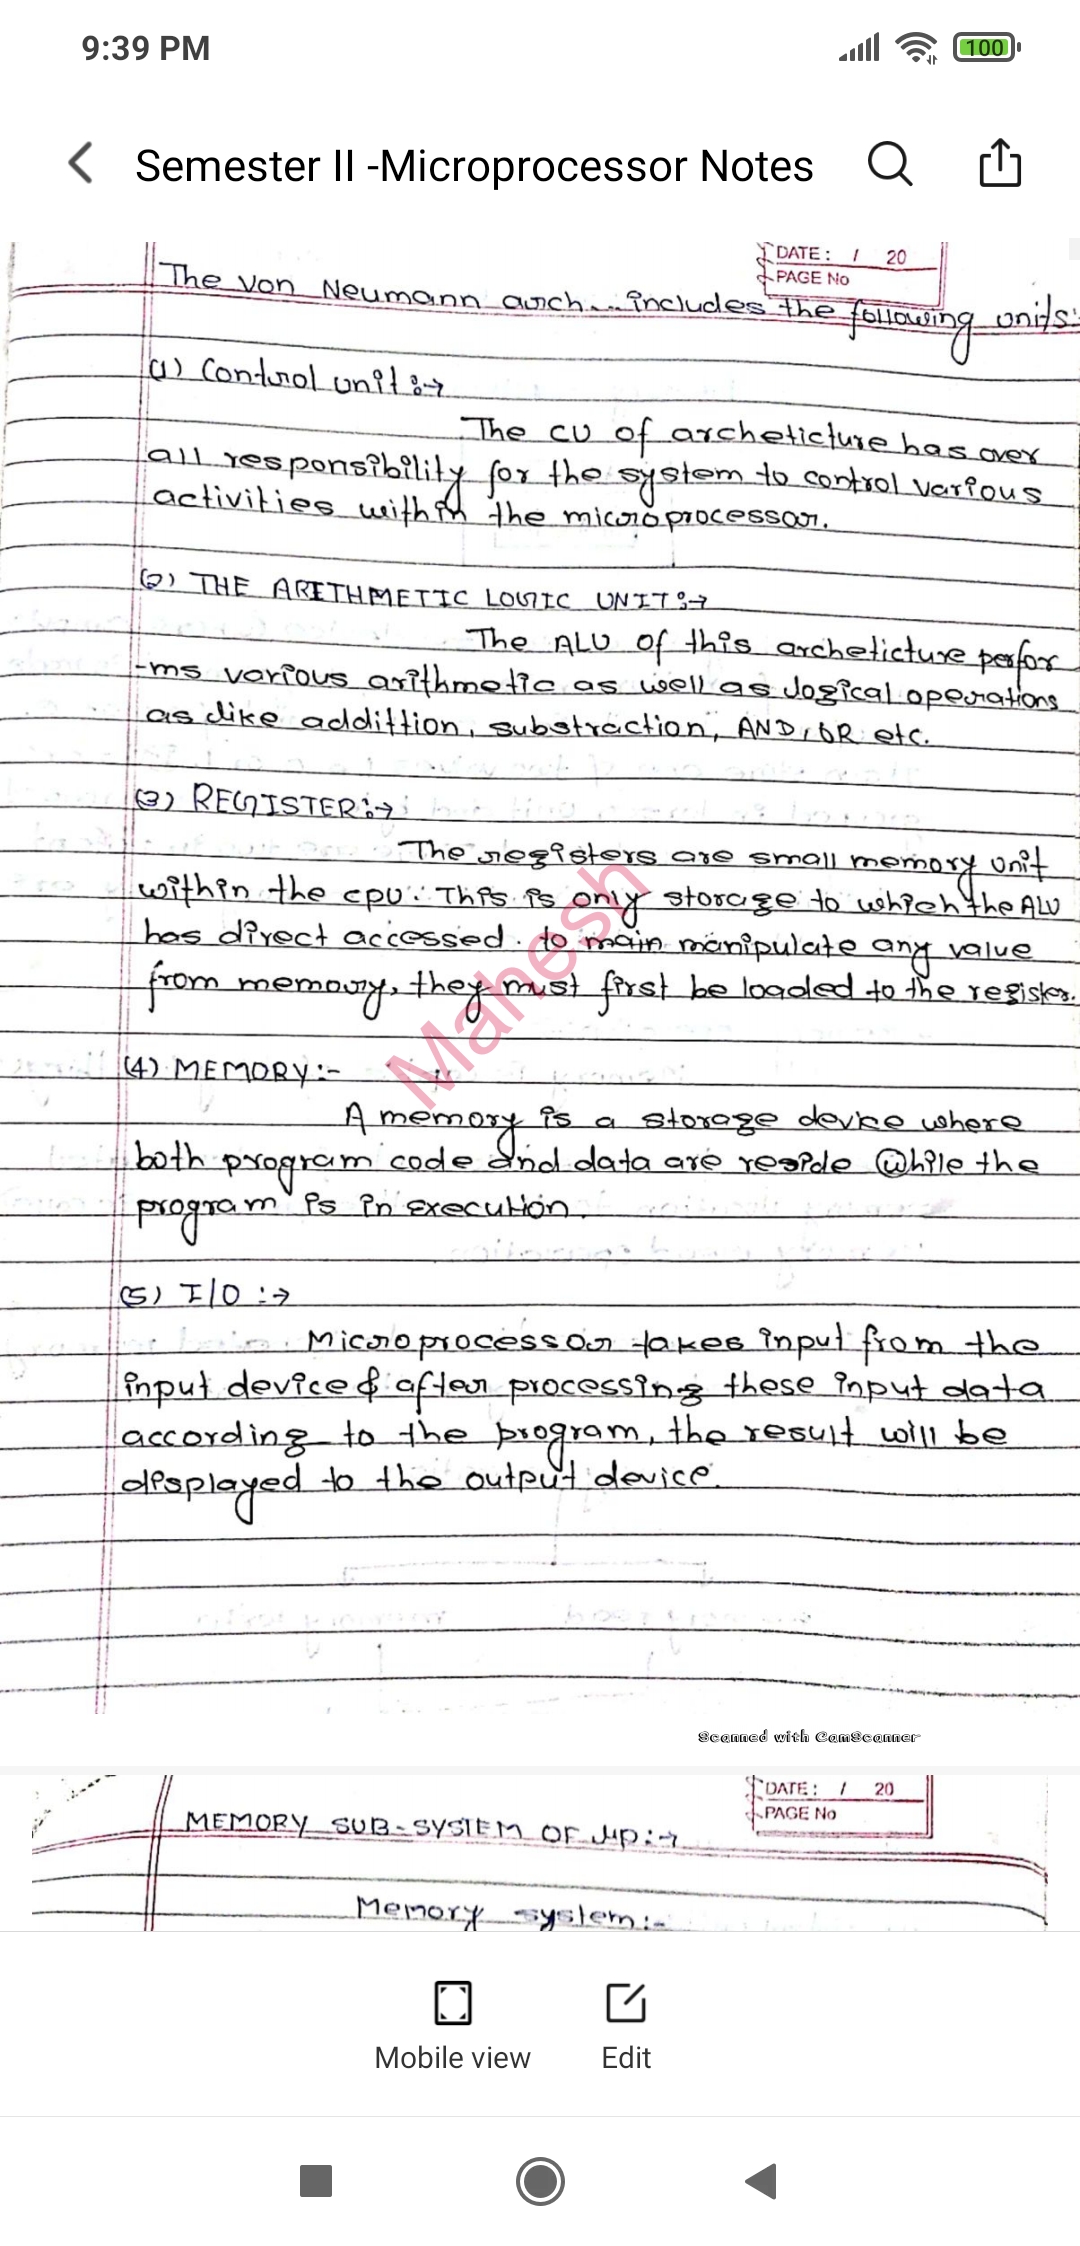 9:39 PM
100
Semester II -Microprocessor Notes
DATE: / 20
PAGE No
The Von Neumann arch... includes the following units:
(1) Control unit :→
The CU of archeticture has over
all responsibility for the system to control various
activities within the microprocessor.
(2) THE ARITHMETIC LOGIC UNIT :→
The ALU of this archeticture perfor
-ms various arithmetic as well as logical operations
as like addittion, substraction, AND, OR etc.
(3) REGISTER :→
The registers are small memory unit
within the cpu. This is only storage to which the ALU
has direct accessed. to main manipulate any value
from memory, they must first be loaded to the register.
Mahesh
(4) MEMORY :-
A memory is a storage device where
both program code and data are reside While the
program is in execution.
(5) I/O :→
Microprocessor takes input from the
input device & after processing these input data
according to the program, the result will be
displayed to the output device.
Scanned with CamScanner
DATE: / 20
PAGE No
MEMORY SUB-SYSTEM OF μP :→
Memory system :-
Mobile view
Edit